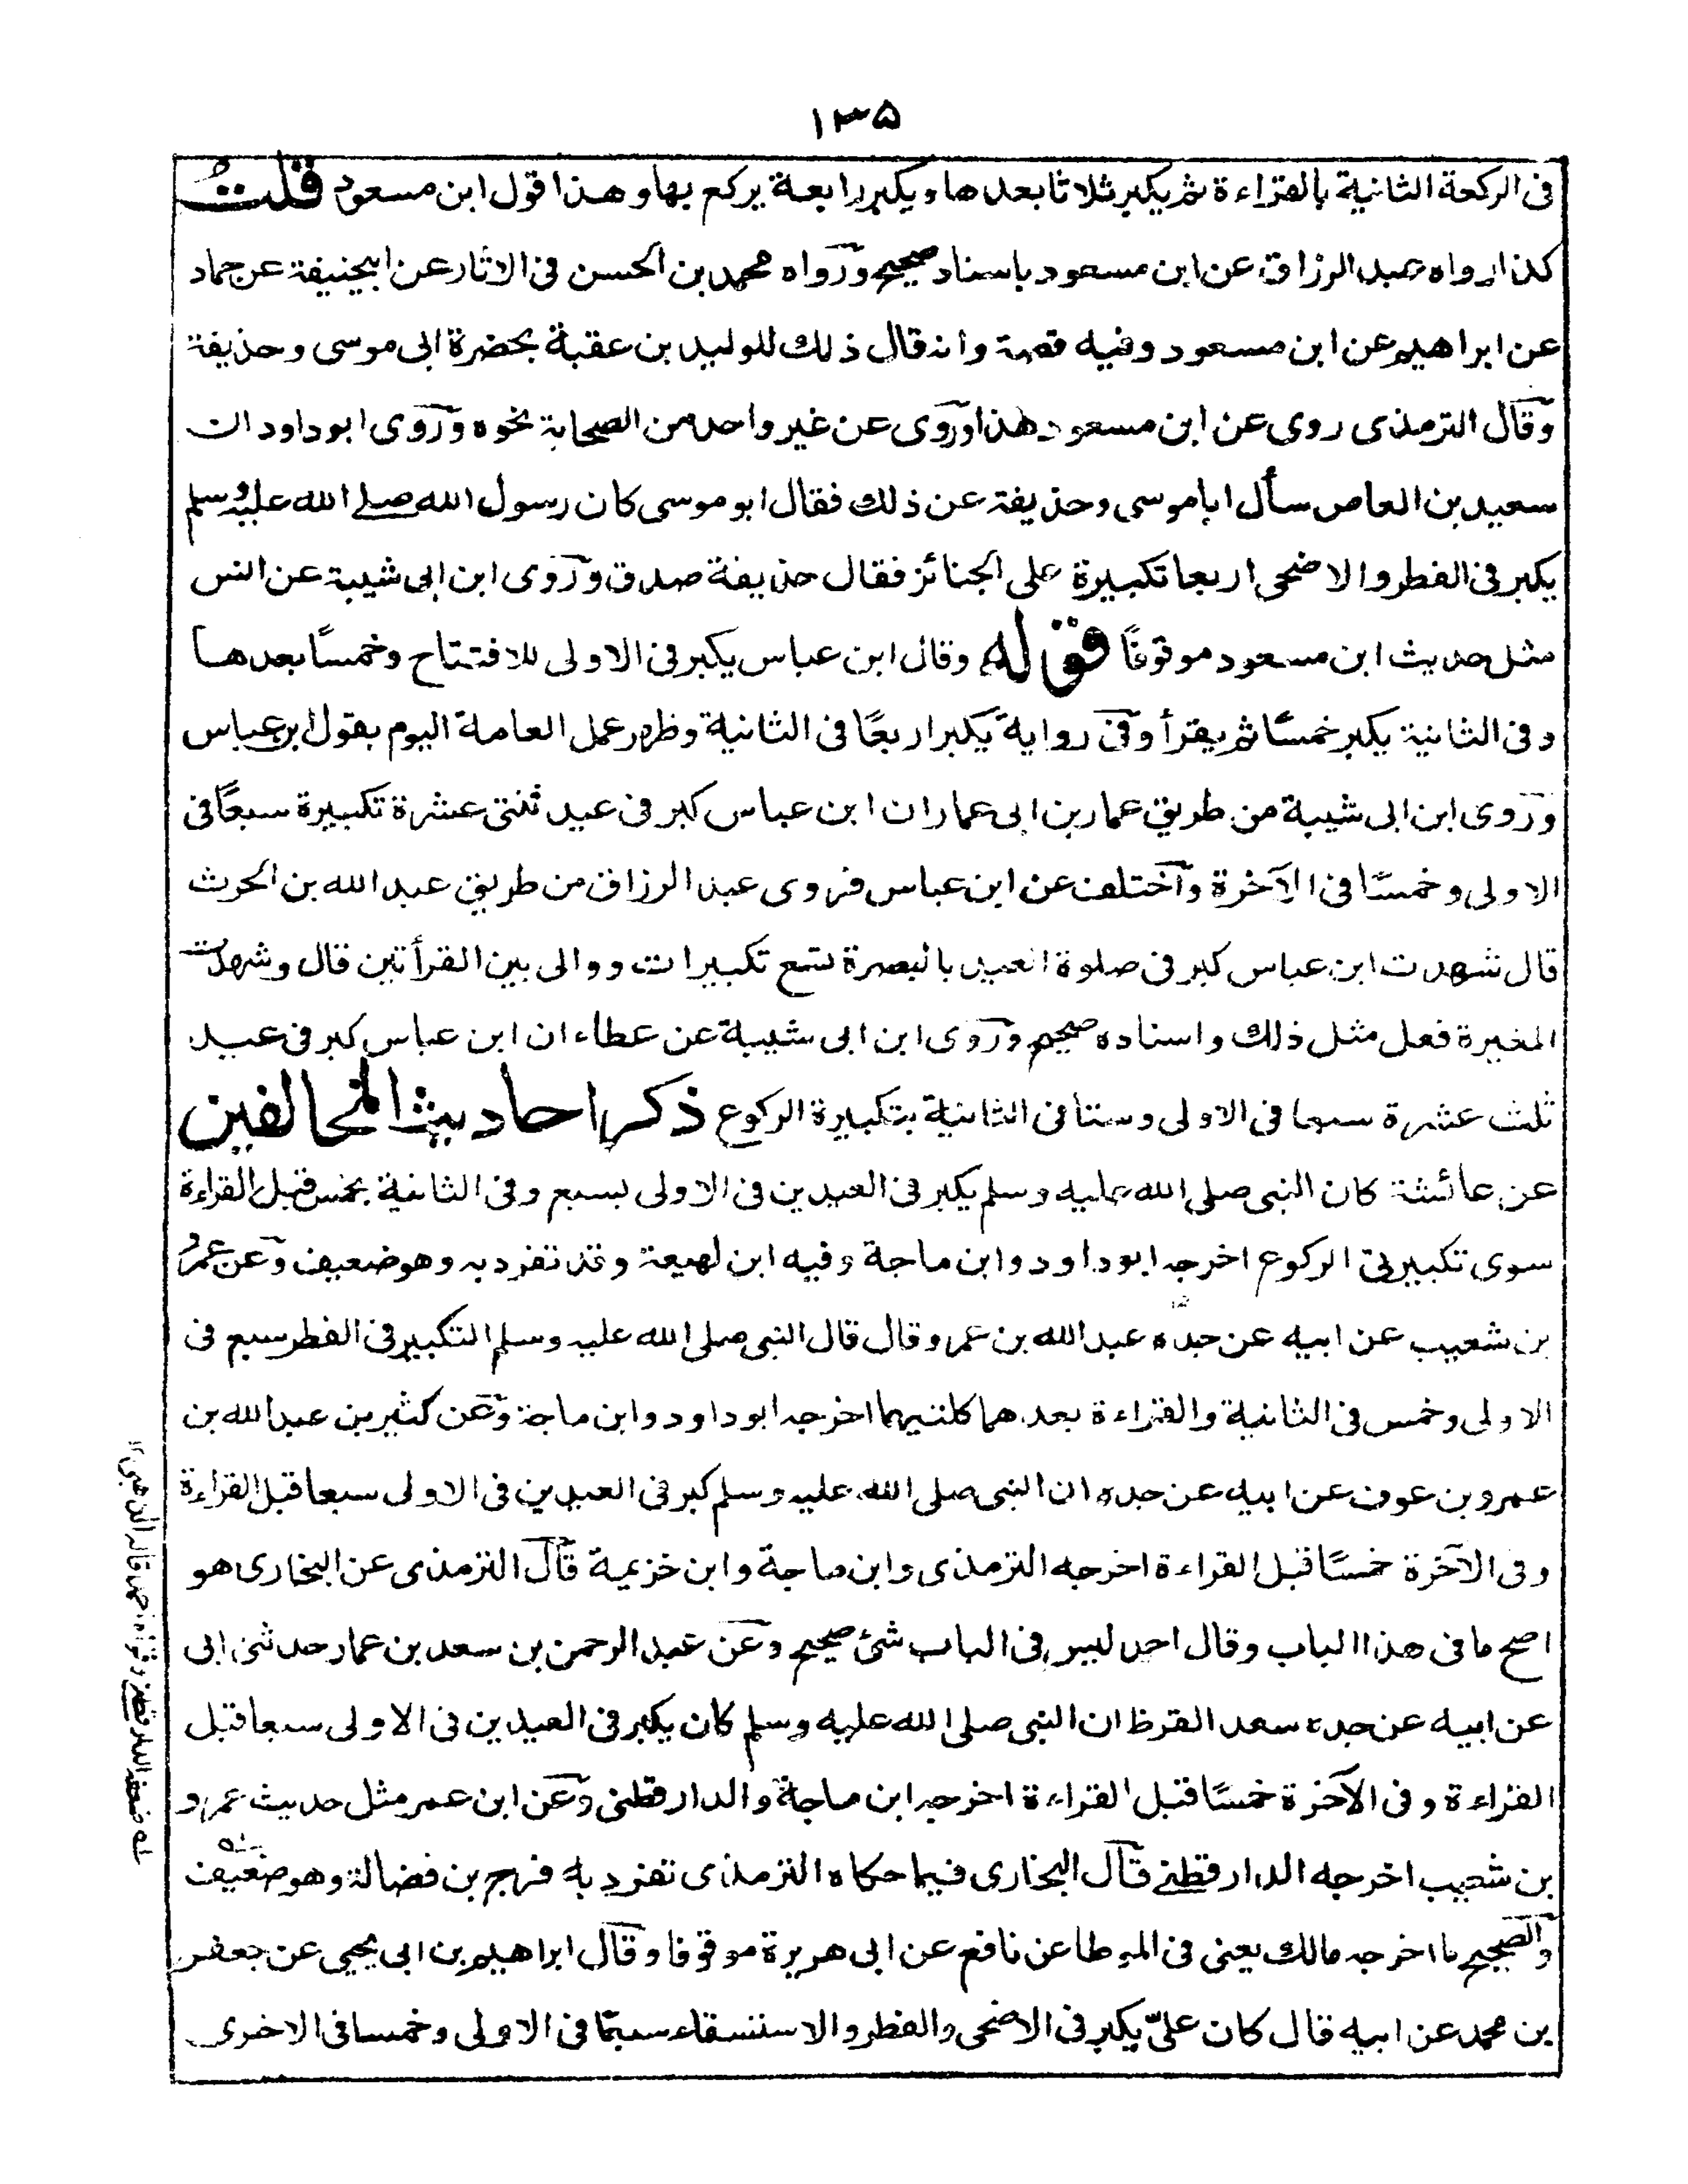 ١٣٥
فى الركعة الثانية بالقراءة ثم يكبر ثلاثا بعدها ويكبر رابعة يركع بها وهذا قول ابن مسعود قلت
كذا رواه عبد الرزاق عن ابن مسعود باسناد صحيح ورواه محمد بن الحسن فى الاثار عن ابيحنيفة عن حماد
عن ابراهيم عن ابن مسعود وفيه قصة وانه قال ذلك للوليد بن عقبة بحضرة ابى موسى وحذيفة
وقال الترمذى روى عن ابن مسعود هذا وروى عن غير واحد من الصحابة نحوه وروى ابو داود ان
سعيد بن العاص سأل ابا موسى وحذيفة عن ذلك فقال ابو موسى كان رسول الله صلى الله عليه وسلم
يكبر فى الفطر والاضحى اربعا تكبيرة على الجنائز فقال حذيفة صدق وروى ابن ابى شيبة عن انس
مثل حديث ابن مسعود موقوفًا قوله وقال ابن عباس يكبر فى الاولى للافتتاح وخمسًا بعدها
وفى الثانية يكبر خمسًا ثم يقرأ وفى رواية يكبر اربعًا فى الثانية وظهر عمل العامة اليوم بقول ابن عباس
وروى ابن ابى شيبة من طريق عمار بن ابى عمار ان ابن عباس كبر فى عيد ثنتى عشرة تكبيرة سبعًا فى
الاولى وخمسًا فى الآخرة واختلف عن ابن عباس فروى عبد الرزاق من طريق عبد الله بن الحرث
قال شهدت ابن عباس كبر فى صلوة العيد بالبصرة تسع تكبيرات ووالى بين القرأتين قال وشهدت
المغيرة فعل مثل ذلك واسناده صحيح وروى ابن ابى شيبة عن عطاء ان ابن عباس كبر فى عيد
ثلث عشرة سبعا فى الاولى وستا فى الثانية بتكبيرة الركوع ذكر احاديث المخالفين
عن عائشة كان النبى صلى الله عليه وسلم يكبر فى العيدين فى الاولى بسبع وفى الثانية بخمس قبل القراءة
سوى تكبيرتى الركوع اخرجه ابو داود وابن ماجة وفيه ابن لهيعة وقد تفرد به وهو ضعيف وعن عمرو
بن شعيب عن ابيه عن جده عبد الله بن عمرو قال قال النبى صلى الله عليه وسلم التكبير فى الفطر سبع فى
الاولى وخمس فى الثانية والقراءة بعدهما كلتيهما اخرجه ابو داود وابن ماجة وعن كثير بن عبد الله بن
عمرو بن عوف عن ابيه عن جده ان النبى صلى الله عليه وسلم كبر فى العيدين فى الاولى سبعا قبل القراءة
وفى الآخرة خمسًا قبل القراءة اخرجه الترمذى وابن ماجة وابن خزيمة قال الترمذى عن البخارى هو
اصح ما فى هذا الباب وقال احمد ليس فى الباب شئ صحيح وعن عبد الرحمن بن سعد بن عمار حدثنى ابى
عن ابيه عن جده سعد القرظ ان النبى صلى الله عليه وسلم كان يكبر فى العيدين فى الاولى سبعا قبل
القراءة وفى الآخرة خمسًا قبل القراءة اخرجه ابن ماجة والدارقطنى وعن ابن عمر مثل حديث عمرو
بن شعيب اخرجه الدارقطنى قال البخارى فيما حكاه الترمذى تفرد به فرج بن فضالة وهو ضعيف
والصحيح ما اخرجه مالك يعنى فى الموطا عن نافع عن ابى هريرة موقوفا وقال ابراهيم بن ابى يحيى عن جعفر
بن محمد عن ابيه قال كان علىّ يكبر فى الاضحى والفطر والاستسقاء سبعًا فى الاولى وخمسا فى الاخرى
له ضعفه الدارقطنى وقواه احمد قاله الذهبى ١٢